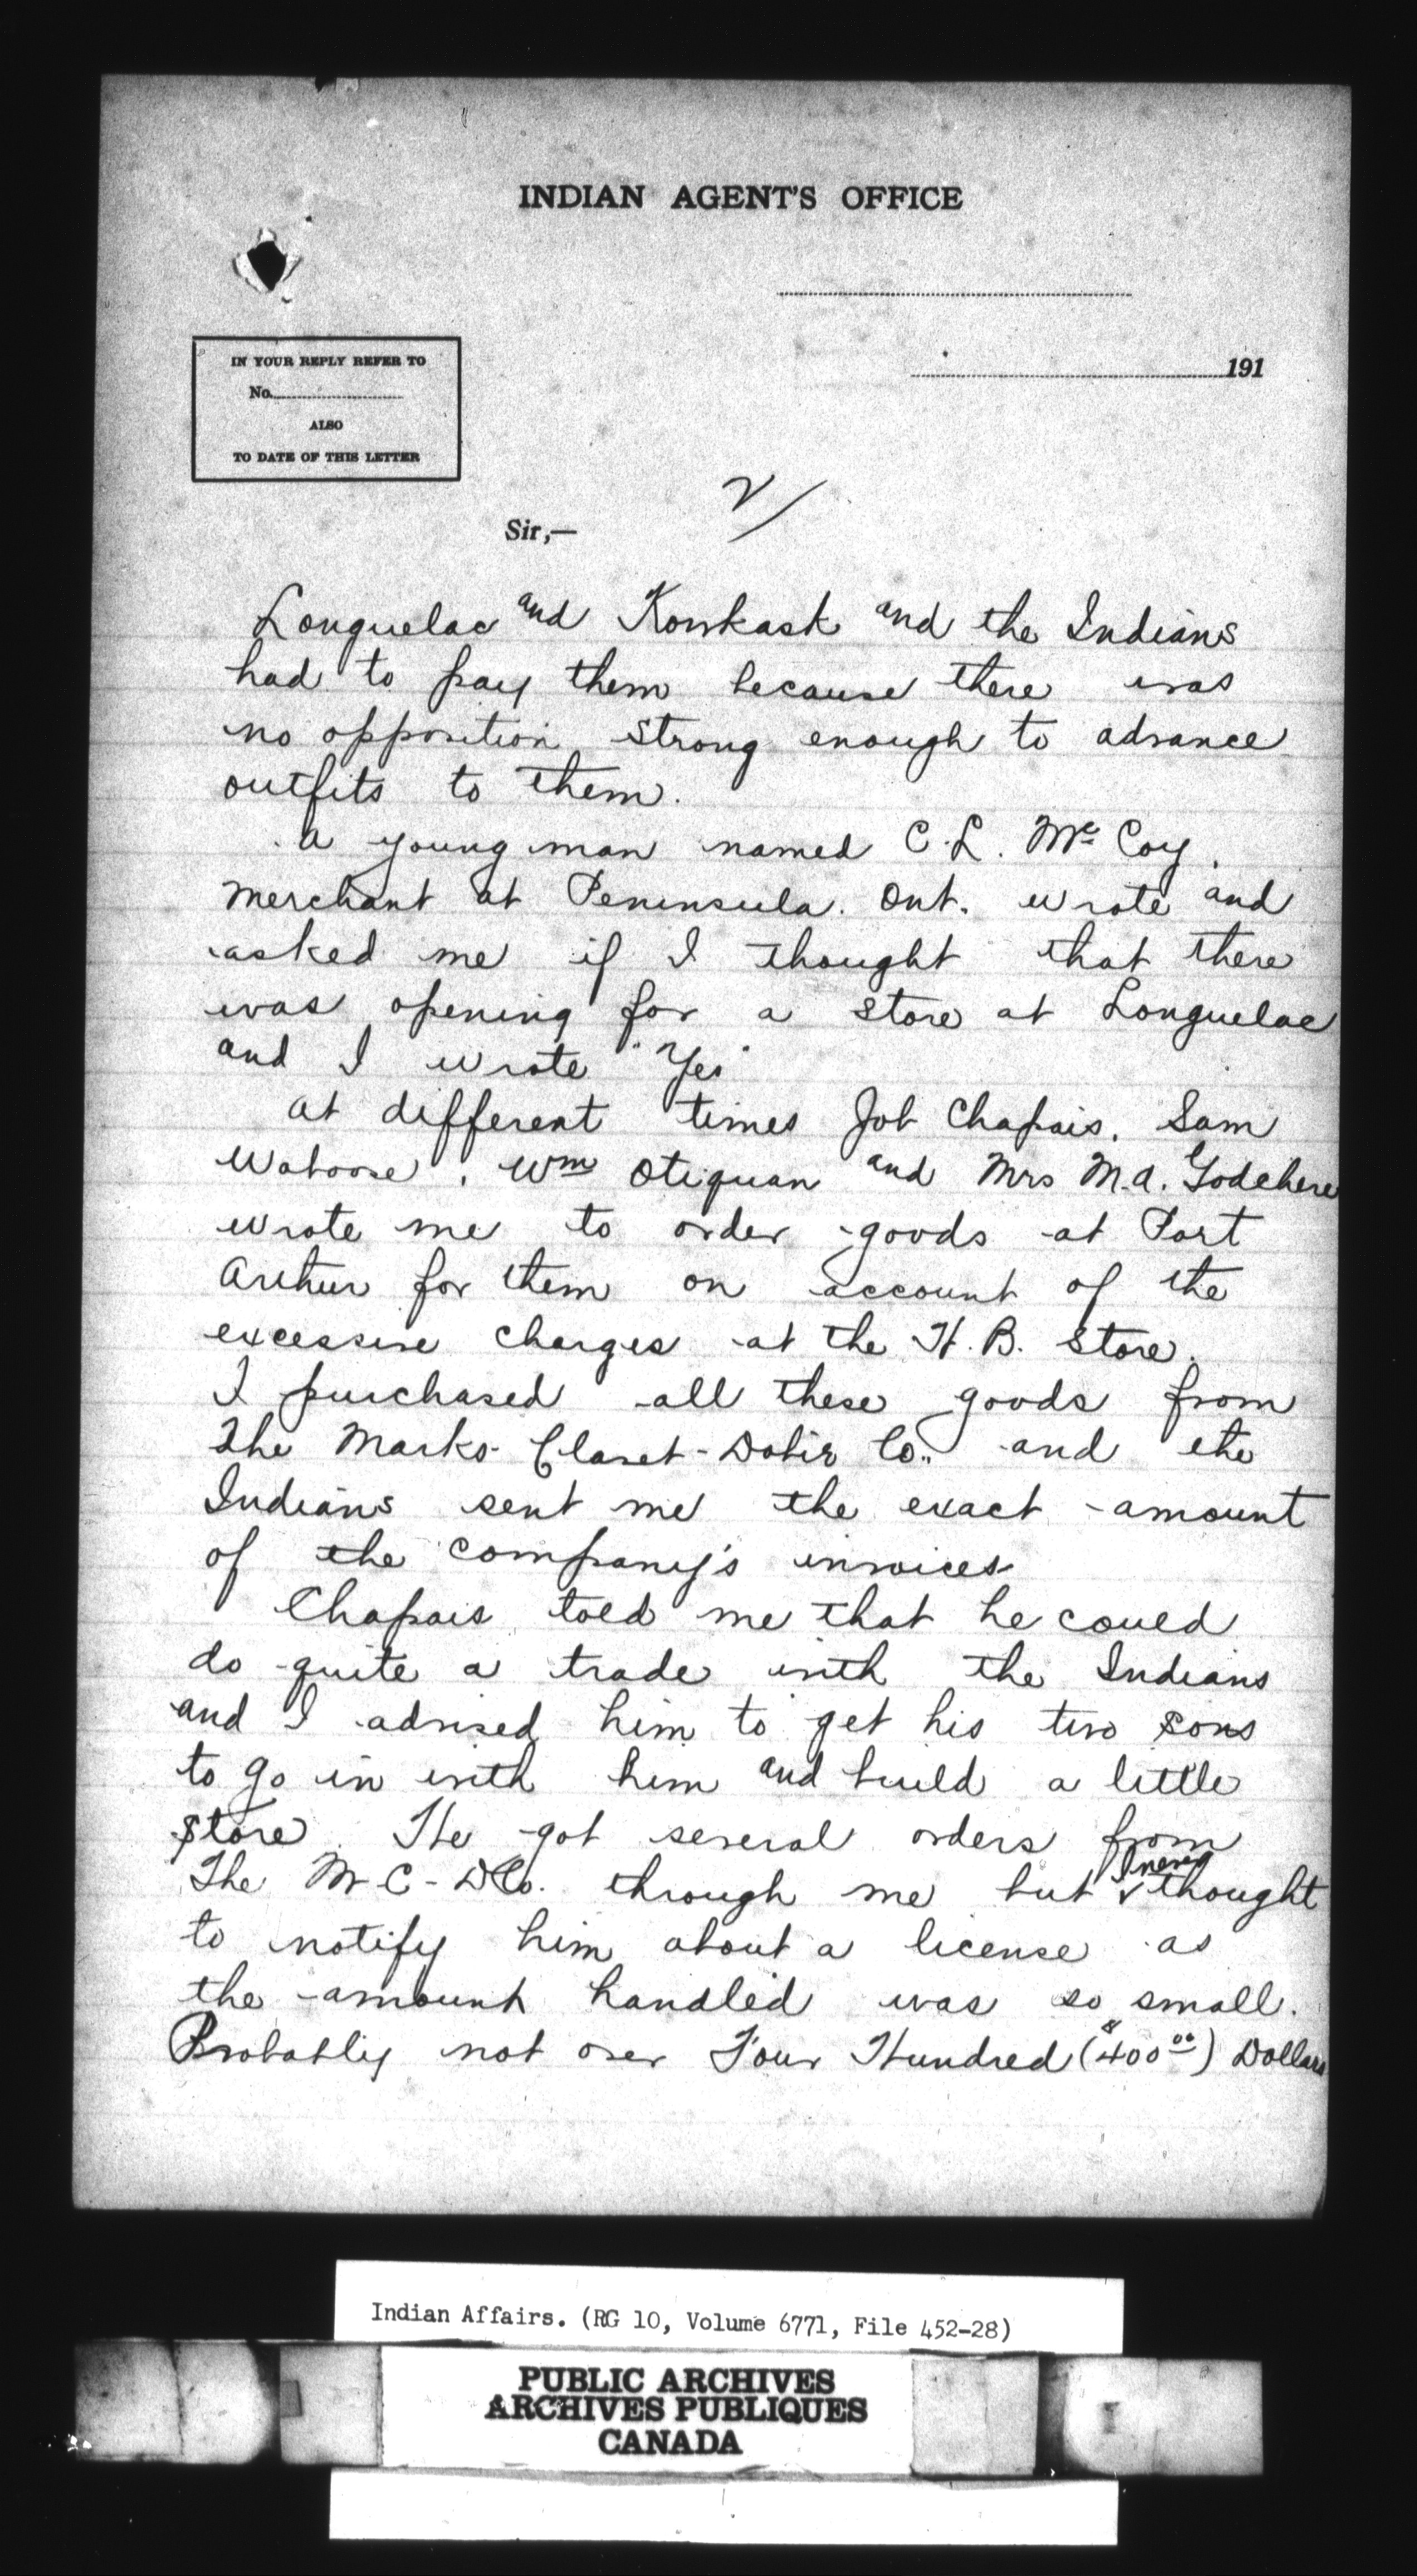 INDIAN AGENT'S OFFICE
191
IN YOUR REPLY REFER TO
No.
ALSO
TO DATE OF THIS LETTER
2/
Sir,—
Longuelac and Kowkask and the Indians
had to pay them because there was
no opposition strong enough to advance
outfits to them.
A young man named C.L. Mc Coy,
Merchant at Peninsula. Ont. wrote and
asked me if I thought that there
was opening for a store at Longuelac
and I wrote "Yes"
At different times Job Chapais, Sam
Waboose, Wm Otiquan and Mrs M.A. Godchere
wrote me to order goods at Port
Arthur for them on account of the
excessive charges at the H.B. Store.
I purchased all these goods from
The Marks-Clavet-Dobie Co., and the
Indians sent me the exact amount
of the Company's invoices
Chapais told me that he could
do quite a trade with the Indians
and I advised him to get his two sons
to go in with him and build a little
store. He got several orders from
The M-C-D Co. through me but I never thought
to notify him about a license as
the amount handled was so small.
Probably not over Four Hundred ($400 00) Dollars
Indian Affairs. (RG 10, Volume 6771, File 452-28)
PUBLIC ARCHIVES
ARCHIVES PUBLIQUES
CANADA